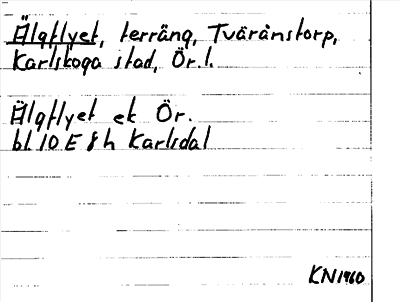 Älgflyet, terräng, Tväränstorp,
Karlskoga stad, Ör. l.
Älgflyet ek Ör.
bl 10 E 8 h Karlsdal
KN 1960